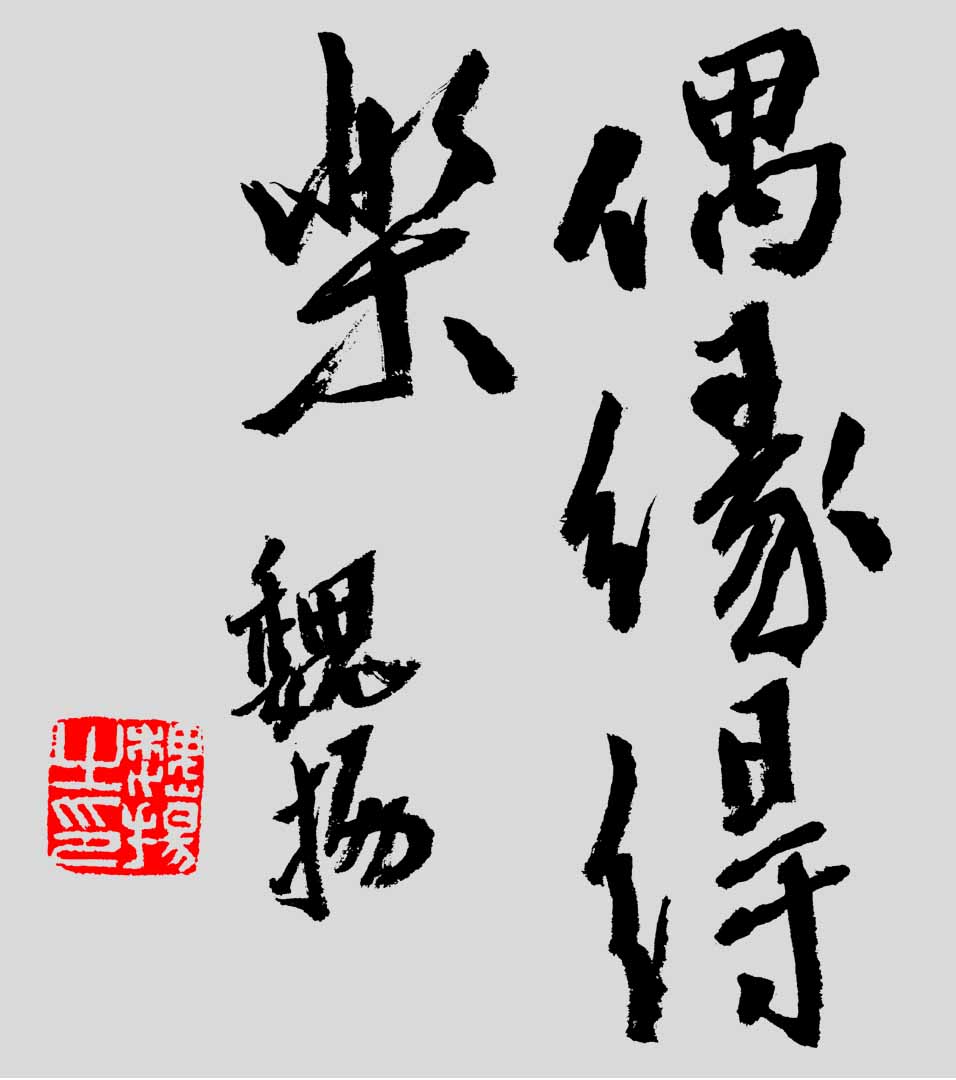 偶緣得
樂
魏揚
魏揚
之印